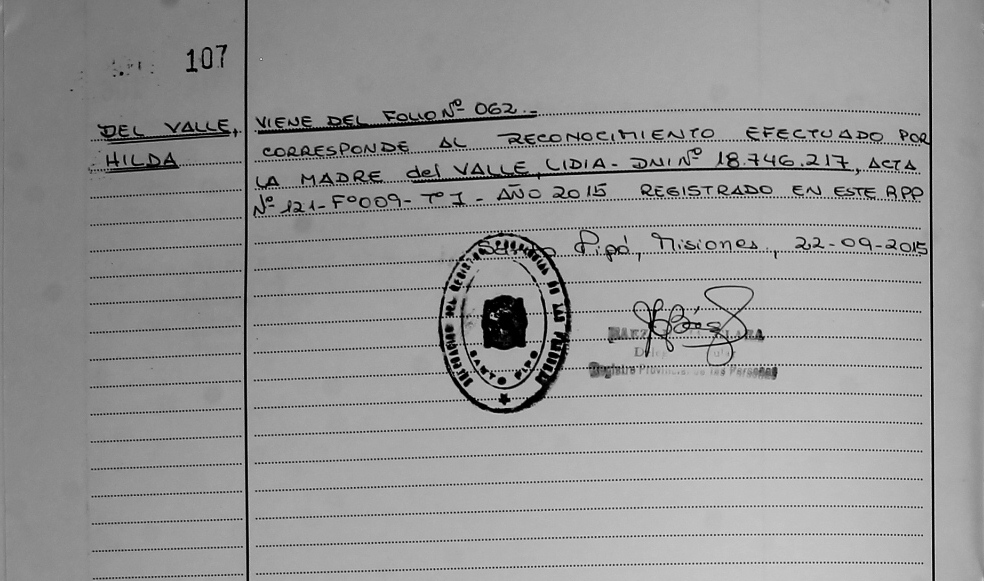 107
DEL VALLE,
HILDA
VIENE DEL FOLIO Nº 062.-
CORRESPONDE AL RECONOCIMIENTO EFECTUADO POR
LA MADRE del VALLE, LIDIA- DNI Nº 18.746.217, ACTA
Nº 121- Fº009- Tº I - AÑO 2015 REGISTRADO EN ESTE RPP
Santo Pipó, Misiones, 22-09-2015
SANTO PIPO
Registro Provincial de las Personas